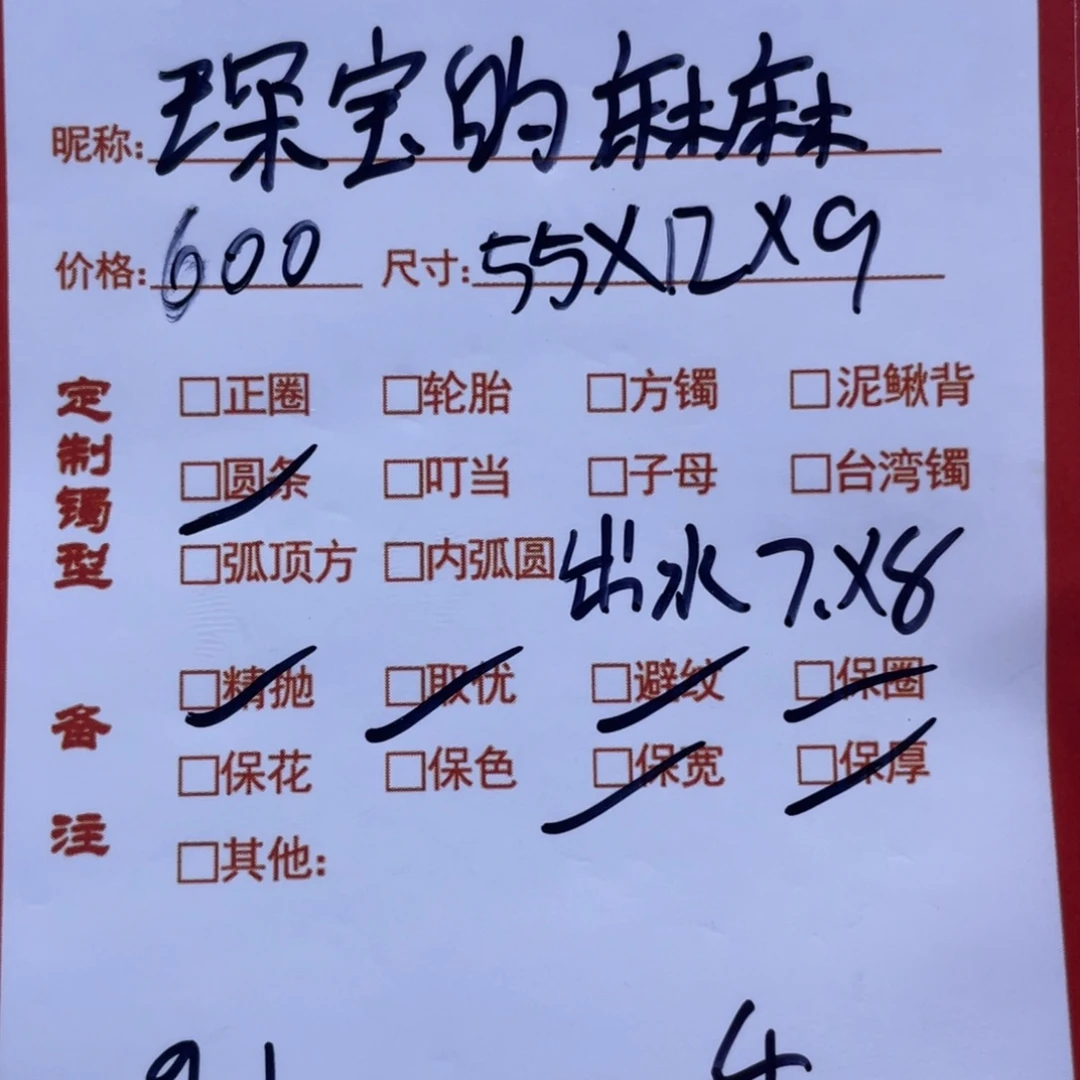 昵称:琛宝的麻麻
价格:600 尺寸:55X12X9
定制镯型
□正圈 □轮胎 □方镯 □泥鳅背
□圆条 □叮当 □子母 □台湾镯
□弧顶方 □内弧圆 出水 7.X8
备注
□精抛 □取优 □避纹 □保圈
□保花 □保色 □保宽 □保厚
□其他: